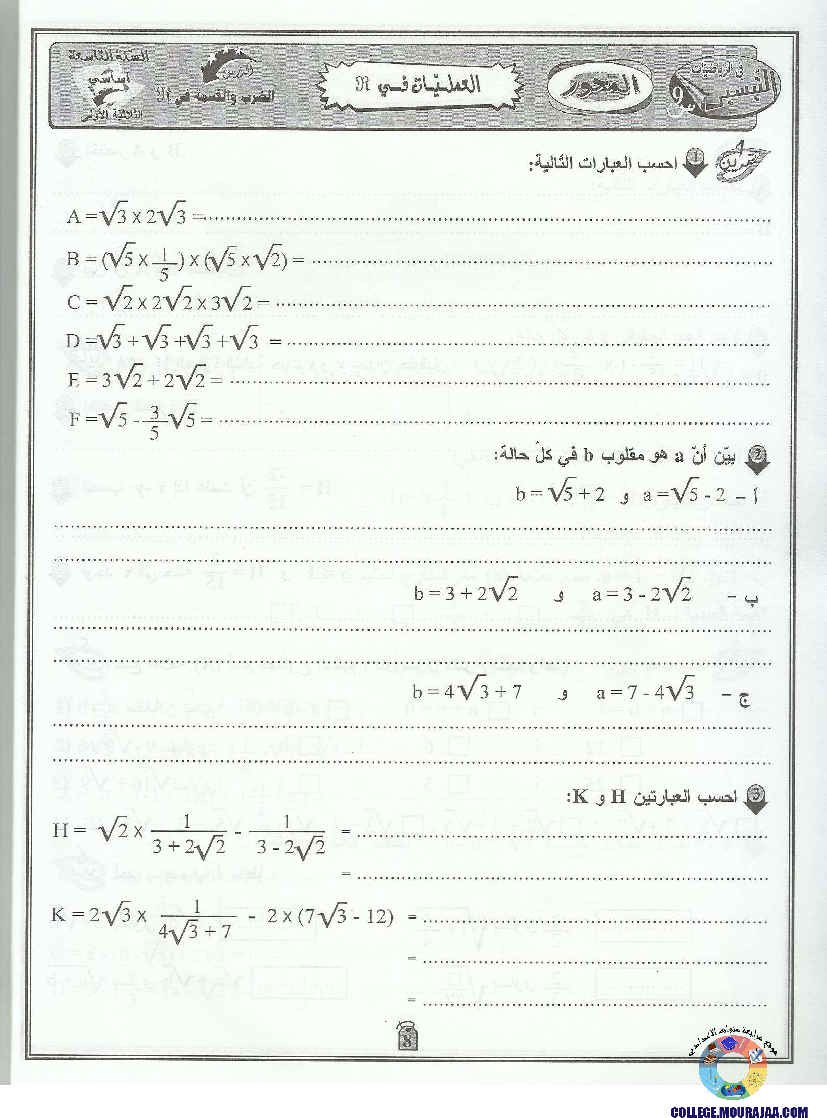 التبسيط في الرياضيات 9
المحور
العمليات في ℜ
الدرس
الضرب والقسمة في ℜ
السنة التاسعة
أساسي
الثلاثية الأولى
تمرين 1 احسب العبارات التالية:
A = √3 x 2√3 = ........
B = (√5 x 1/5) x (√5 x √2) = ........
C = √2 x 2√2 x 3√2 = ........
D = √3 + √3 + √3 + √3 = ........
E = 3√2 + 2√2 = ........
F = √5 - 3/5 √5 = ........
2 بيّن أنّ a هو مقلوب b في كلّ حالة:
أ - a = √5 - 2 و b = √5 + 2
ب - a = 3 - 2√2 و b = 3 + 2√2
ج - a = 7 - 4√3 و b = 4√3 + 7
3 احسب العبارتين H و K:
H = √2 x 1/(3 + 2√2) - 1/(3 - 2√2) = ........
= ........
K = 2√3 x 1/(4√3 + 7) - 2 x (7√3 - 12) = ........
= ........
= ........
8
موقع مراجعة
COLLEGE.MOURAJAA.COM